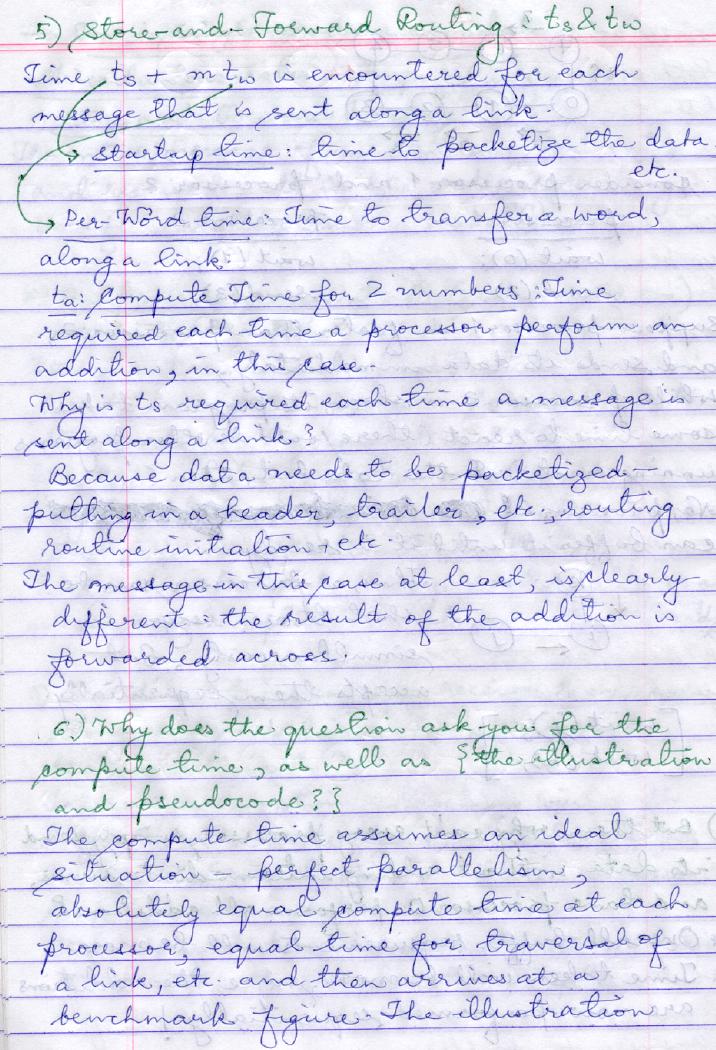 5) Store-and-Forward Routing : ts & tw
Time ts + m tw is encountered for each
message that is sent along a link.
startup time: time to packetize the data
etc.
Per-Word time: Time to transfer a word,
along a link.
ta: Compute Time for 2 numbers : Time
required each time a processor perform an
addition, in this case.
Why is ts required each time a message is
sent along a link?
Because data needs to be packetized -
putting in a header, trailer, etc., routing
routine initiation, etc.
The message in this case at least, is clearly
different : the result of the addition is
forwarded across.
6.) Why does the question ask you for the
compute time, as well as {the illustration
and pseudocode?}
The compute time assumes an ideal
situation - perfect parallelism,
absolutely equal compute time at each
processor, equal time for traversal of
a link, etc. and then arrives at a
benchmark figure. The illustration